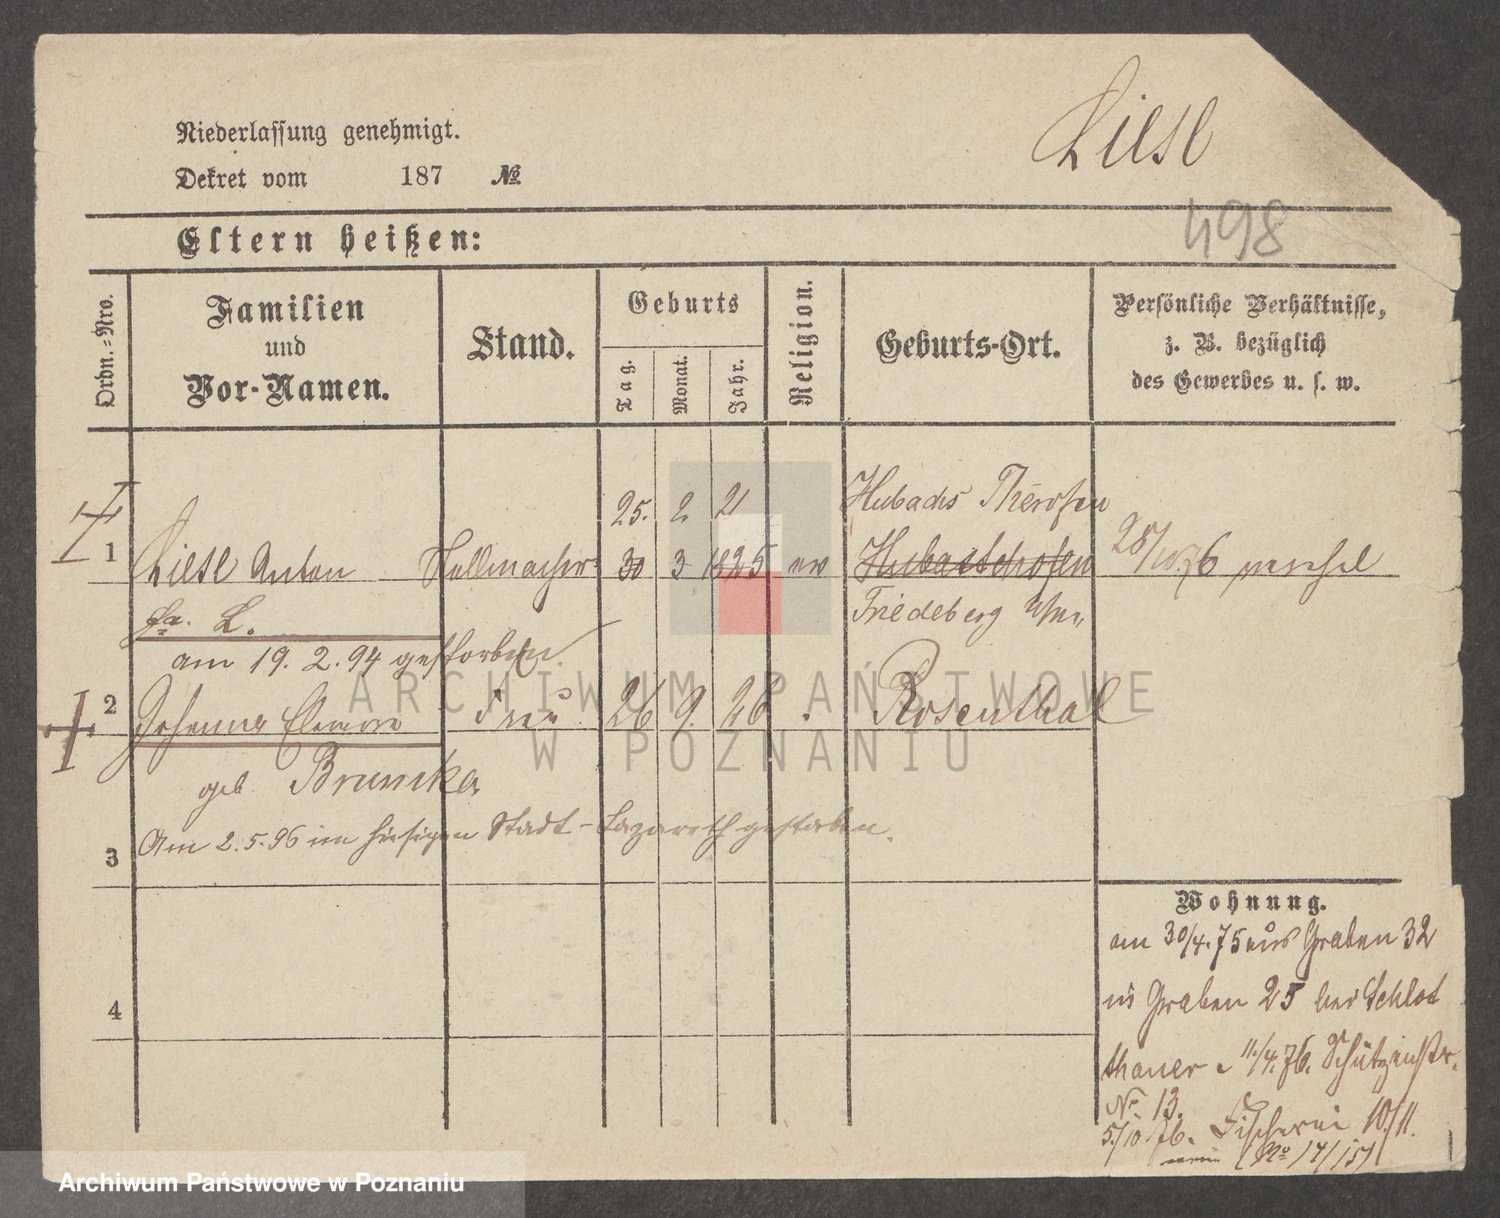 Liese
Niederlassung genehmigt.
Dekret vom 187 №
498
Eltern heißen:
Ordn.-Nro.
Familien
und
Vor-Namen.
Stand.
Geburts
Tag.
Monat.
Jahr.
Religion.
Geburts-Ort.
Persönliche Verhältnisse,
z. B. bezüglich
des Gewerbes u. s. w.
25. 2. 21
1 Liese Anton Stellmacher 30 3 1825 ev
28/10.76
Friedeberg
L.
am 19. 2. 94 gestorben.
2 Johanna Frau 26 9. 26 Rosenthal
geb.
Am 2.5.96 im hiesigen Stadt-Lazareth gestorben.
3
4
Wohnung.
am 30/4.75 aus Graben 32
in Graben 25 bei Schlot
thauer 11./4.76. Schützenstr.
No 13.
5/10 76. Fischerei 10/11.
(No 14/15)
ARCHIWUM PAŃSTWOWE
W POZNANIU
Archiwum Państwowe w Poznaniu